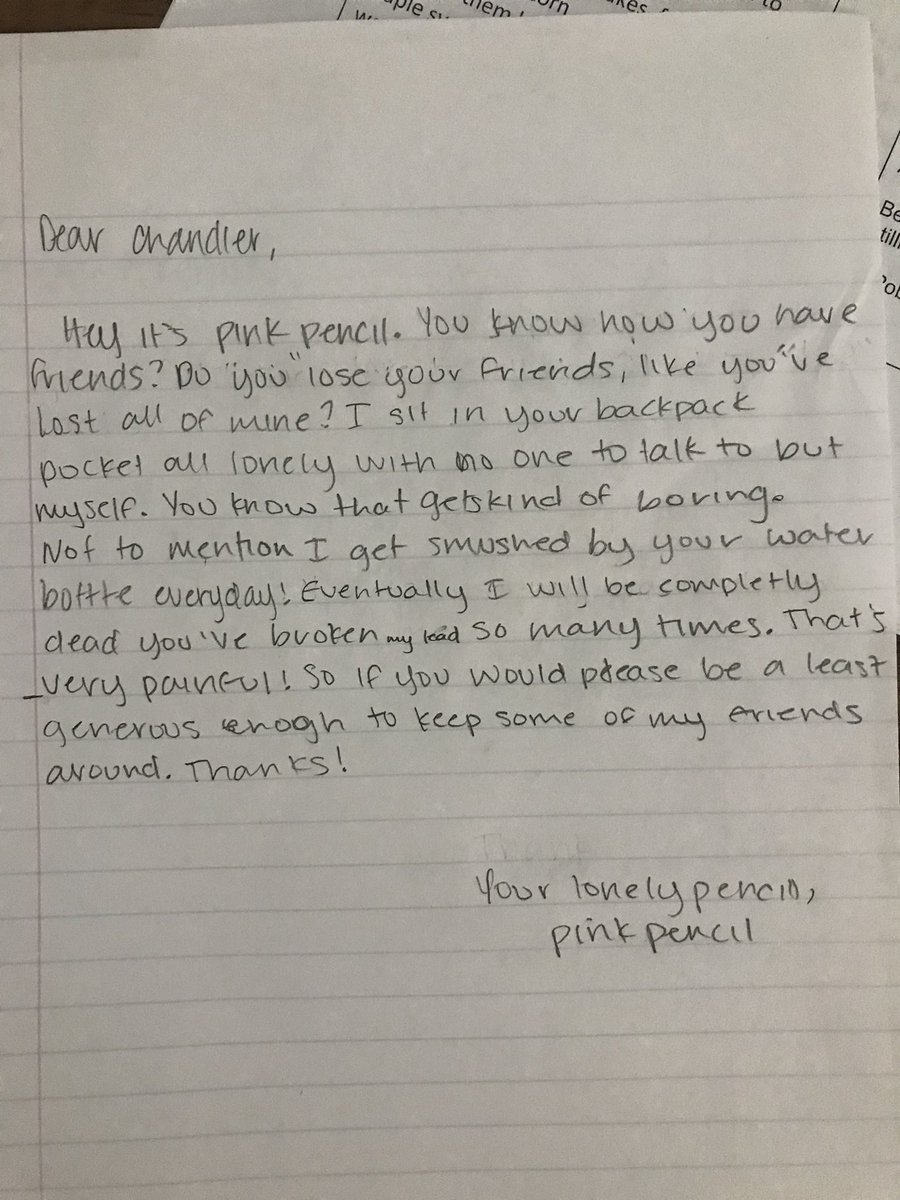 them
to
Be
Dear Chandler,
Hey it's pink pencil. You know how you have
friends? Do "you" lose your friends, like you've
lost all of mine? I sit in your backpack
pocket all lonely with no one to talk to but
myself. You know that gets kind of boring.
Not to mention I get smushed by your water
bottle everyday! Eventually I will be completly
dead you've broken my lead so many times. That's
very painful! So if you would please be a least
generous enogh to keep some of my friends
around. Thanks!
Your lonely pencil,
pink pencil